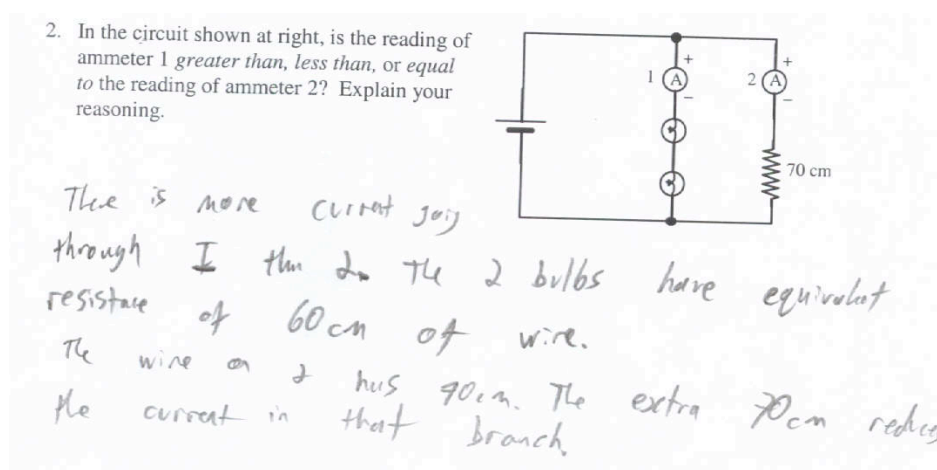 2. In the circuit shown at right, is the reading of
ammeter 1 greater than, less than, or equal
to the reading of ammeter 2? Explain your
reasoning.
1 A +
–
2 A +
–
70 cm
There is more current going
through I than 2. The 2 bulbs have equivalent
resistance of 60 cm of wire.
The wire on 2 has 70cm. The extra 70cm reduces
the current in that branch.